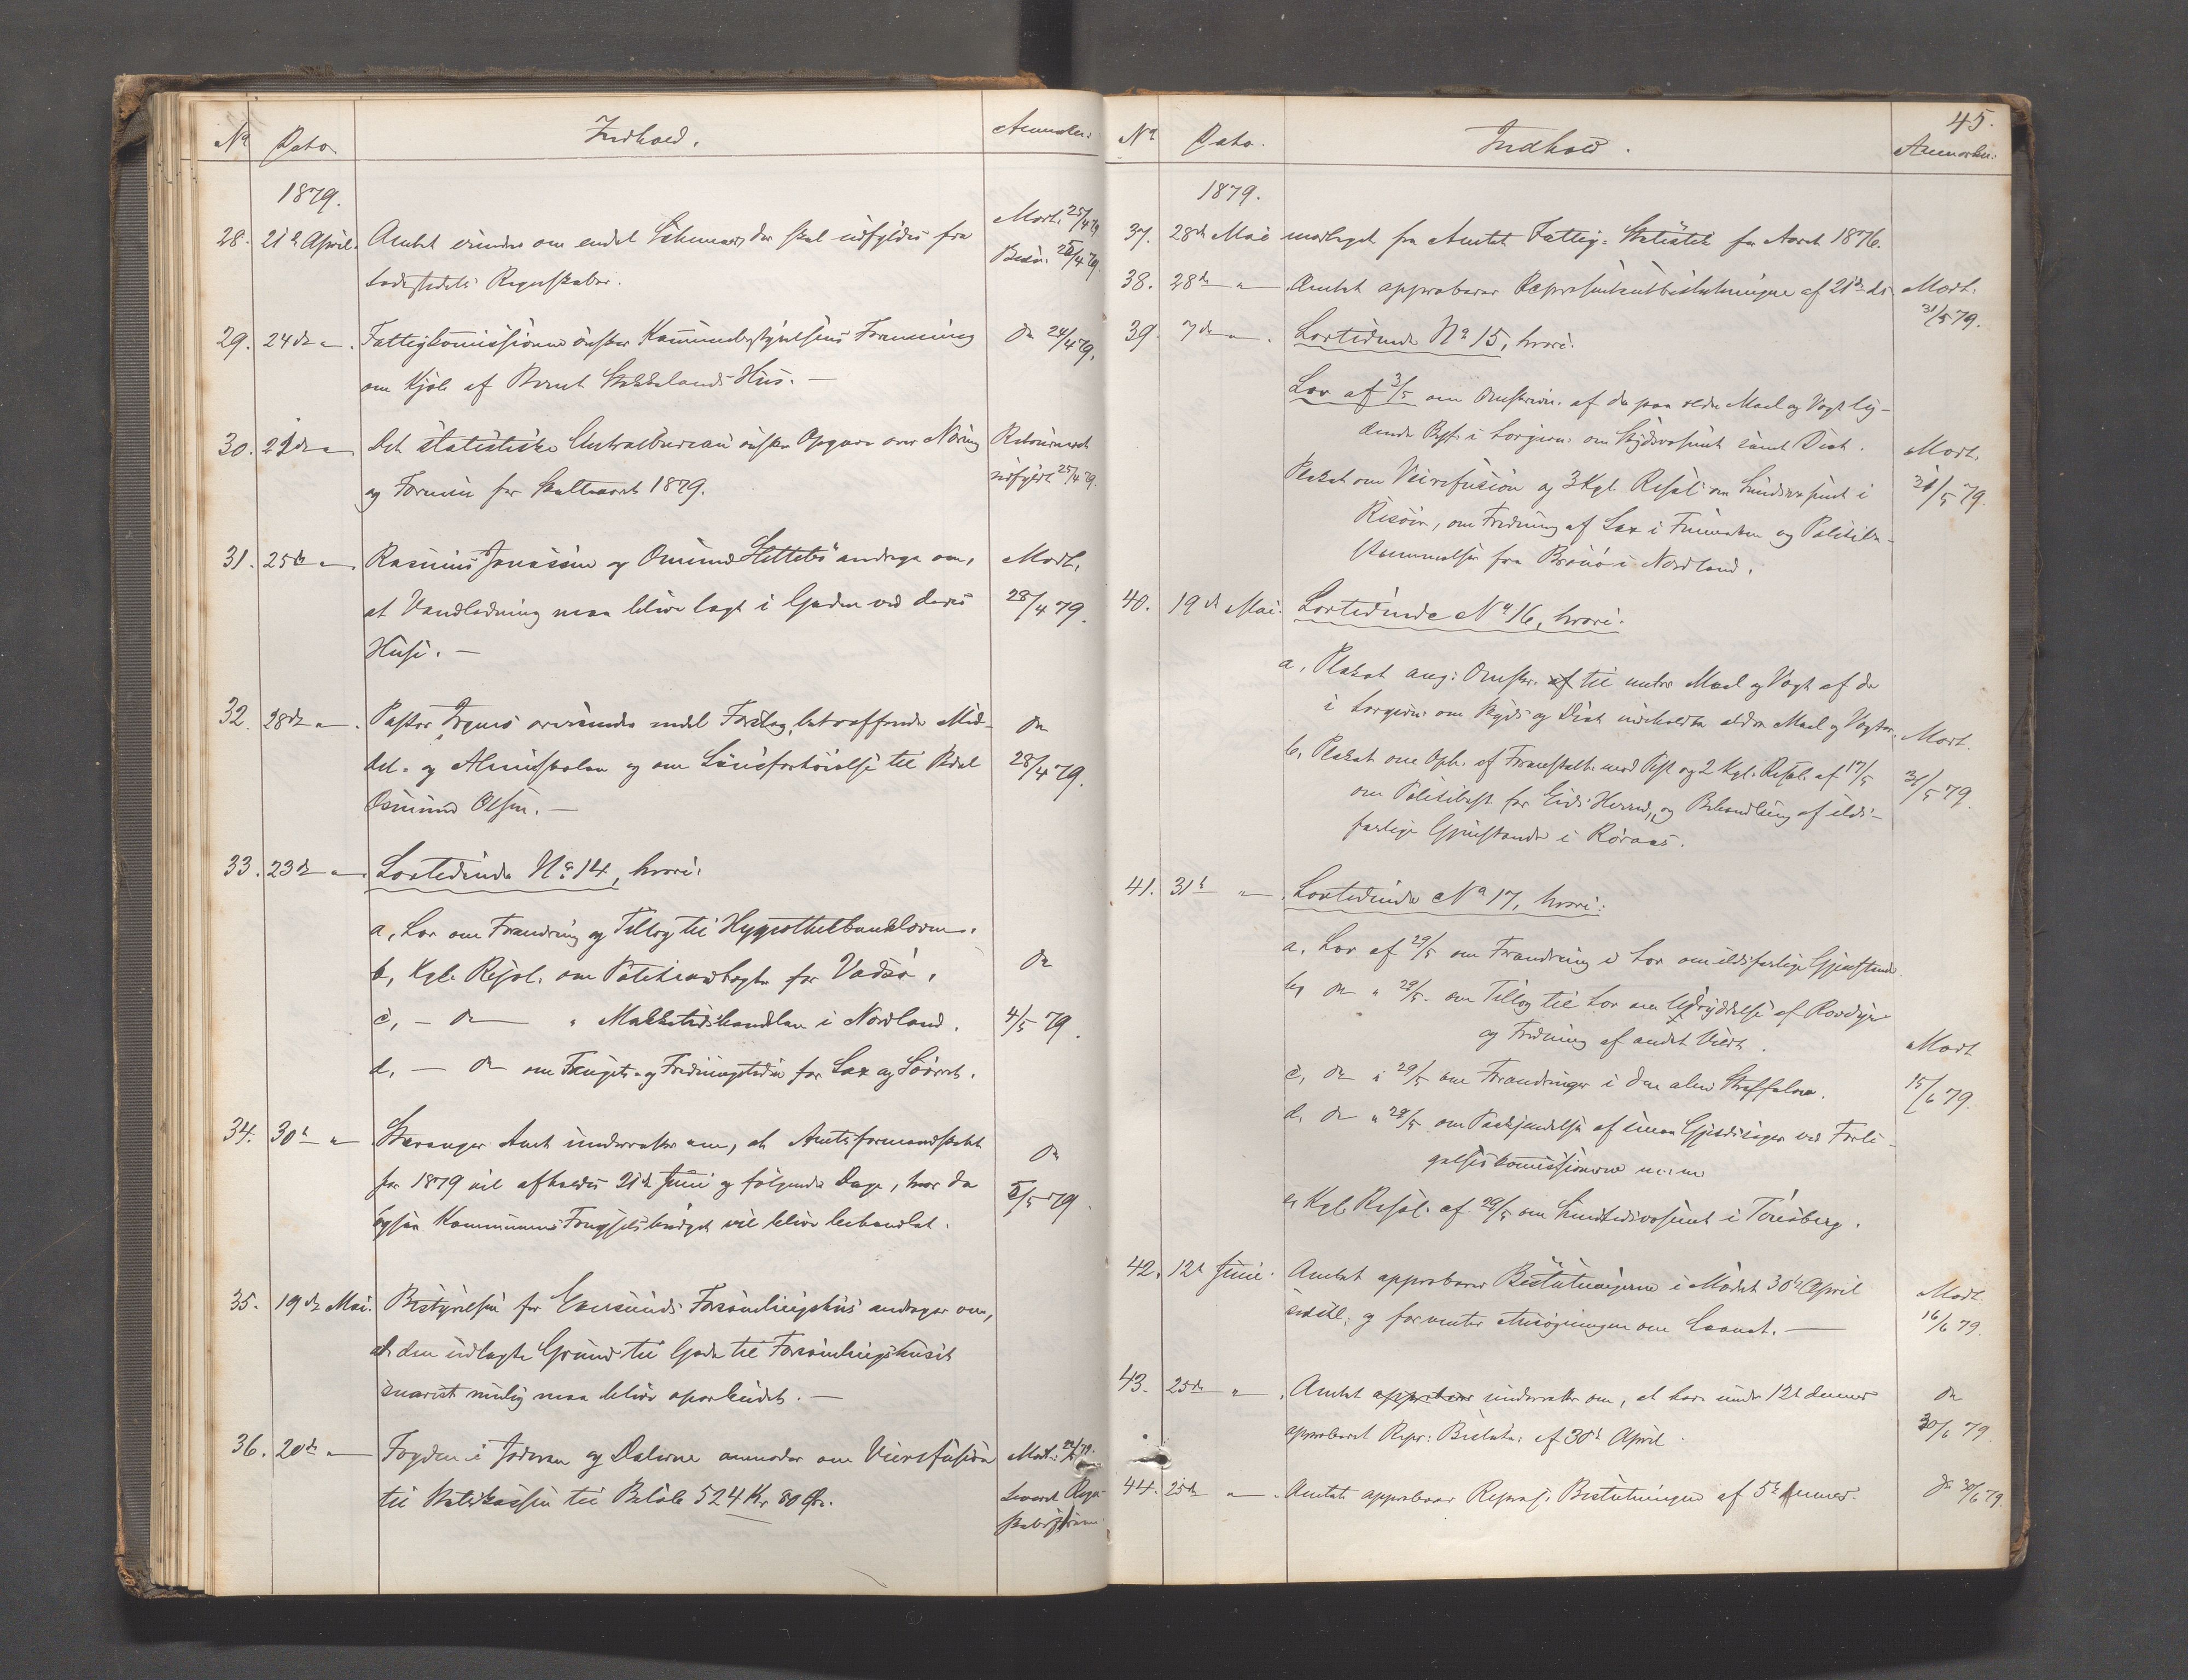 No Dato. Indhold. Anmærkn:
1879.
28. 21de April. Amtet minder om endel Schemaer, der skal udfyldes fra Modt. 25/4 79
Ladestedets Regnskaber. Besv. 26/4 79.
29. 24de " Fattigkomissionen ønsker Kommunebestyrelsens Formening do 24/4 79.
om Kjøb af Berent Stokkelands Hus. —
30. 22de " Det statistiske Centralbureau ønsker Opgave over Næring Returneret
og Formue for Skatteaaret 1879. udfyldt 25/4 79.
31. 25de " Rasmus Jonassen og Omund Slettebø andrage om, Modt.
at Vandledning maa blive lagt i Gaden ved deres 28/4 79.
Huse. —
32. 28de " Pastor oversender endel Forslag betræffende Mid- do
del- og Almueskolen og om Lønsforhøielse til 28/4 79.
Osmund Olsen. —
33. 23de " Lovtidende No 14, hvori:
a, Lov om Forandring og Tillæg til Hypothekbankloven.
b, Kgl. Resol. om Politivedtægter for Vadsø. do
c, — do — " Makketidshandelen i Nordland. 4/5 79.
d, — do om Fangst- og Fredningstiden for Lax og Søørret.
34. 30te " Stavanger Amt underretter om, at Amtsformandskabet do
for 1879 vil afholdes 21de Juni og følgende Dage, hvor da 5/5 79.
ogsaa Kommunens Fængselsbudget vil blive behandlet.
35. 19de Mai. Bestyrelsen for Egersunds Forsamlingshus andrager om,
at den udlagte Grund til Gade til Forsamlingshuset
snarest mulig maa blive oparbeidet. —
36. 20de " Fogden i Jæderen og Dalerne anmoder om Veirefusion Modt. 22/5 79.
til Statskassen til Beløb 524 Kr 80 Øre. Leveret Regn-
skabsføreren
45.
No Dato. Indhold. Anmærkn:
1879.
37. 28de Mai modtaget fra Amtet Fattig-Statistik for Aaret 1876.
38. 28de " Amtet approberer Repræsentantbeslutningen af 21de ds. Modt.
31/5 79.
39. 7de " Lovtidende No 15, hvori:
Lov af 3/5 om Omskrivn. af de paa ældre Maal og Vægt ly-
dende Best. i Lovgivn. om Skydsvæsenet samt Diæt. Modt.
Plakat om Veirefusion og 3 Kgl. Resol. om Sundvæsenet i 31/5 79.
Risøer, om Fredning af Lax i Finmarken og Politibe-
stemmelser fra Brønø i Nordland.
40. 19de Mai. Lovtidende No 16, hvori:
a, Plakat ang: Omskr. af til metr. Maal og Vægt af de
i Lovgivn: om Skyds og Diæt indeholdte ældre Maal og Vægter. Modt.
b, Plakat om Oph. af Foranstalt. mod Pest og 2 Kgl. Resol. af 17/5 31/5 79.
om Politibest. for Eids Herred, og Behandling af ilds-
farlige Gjenstande i Røraas.
41. 31te " Lovtidende No 17, hvori:
a, Lov af 29/5 om Forandring i Lov om ildsfarlige Gjenstande.
b, do " 29/5 om Tillæg til Lov om Udryddelse af Rovdyr
og Fredning af andet Vildt. Modt
c, do " 29/5 om Forandringer i den alm. Straffelov. 15/6 79.
d, do " 29/5 om Paakjendelse af smaa Gjeldssager ved Forli-
gelseskomissionerne m. m
e, Kgl. Resol. af 29/5 om i Tønsberg.
42. 12te Juni. Amtet approberer Beslutningerne i Mødet 30te April Modt.
sidstl. og forventer Ansøgningen om Laanet. — 16/6 79.
43. 25de " Amtet approberer underretter om, at have under 12te dennes do
approberet Repr: Beslutn: af 30te April. 30/6 79.
44. 25de " Amtet approberer Repræs. Beslutningen af 5te dennes. do 30/6 79.